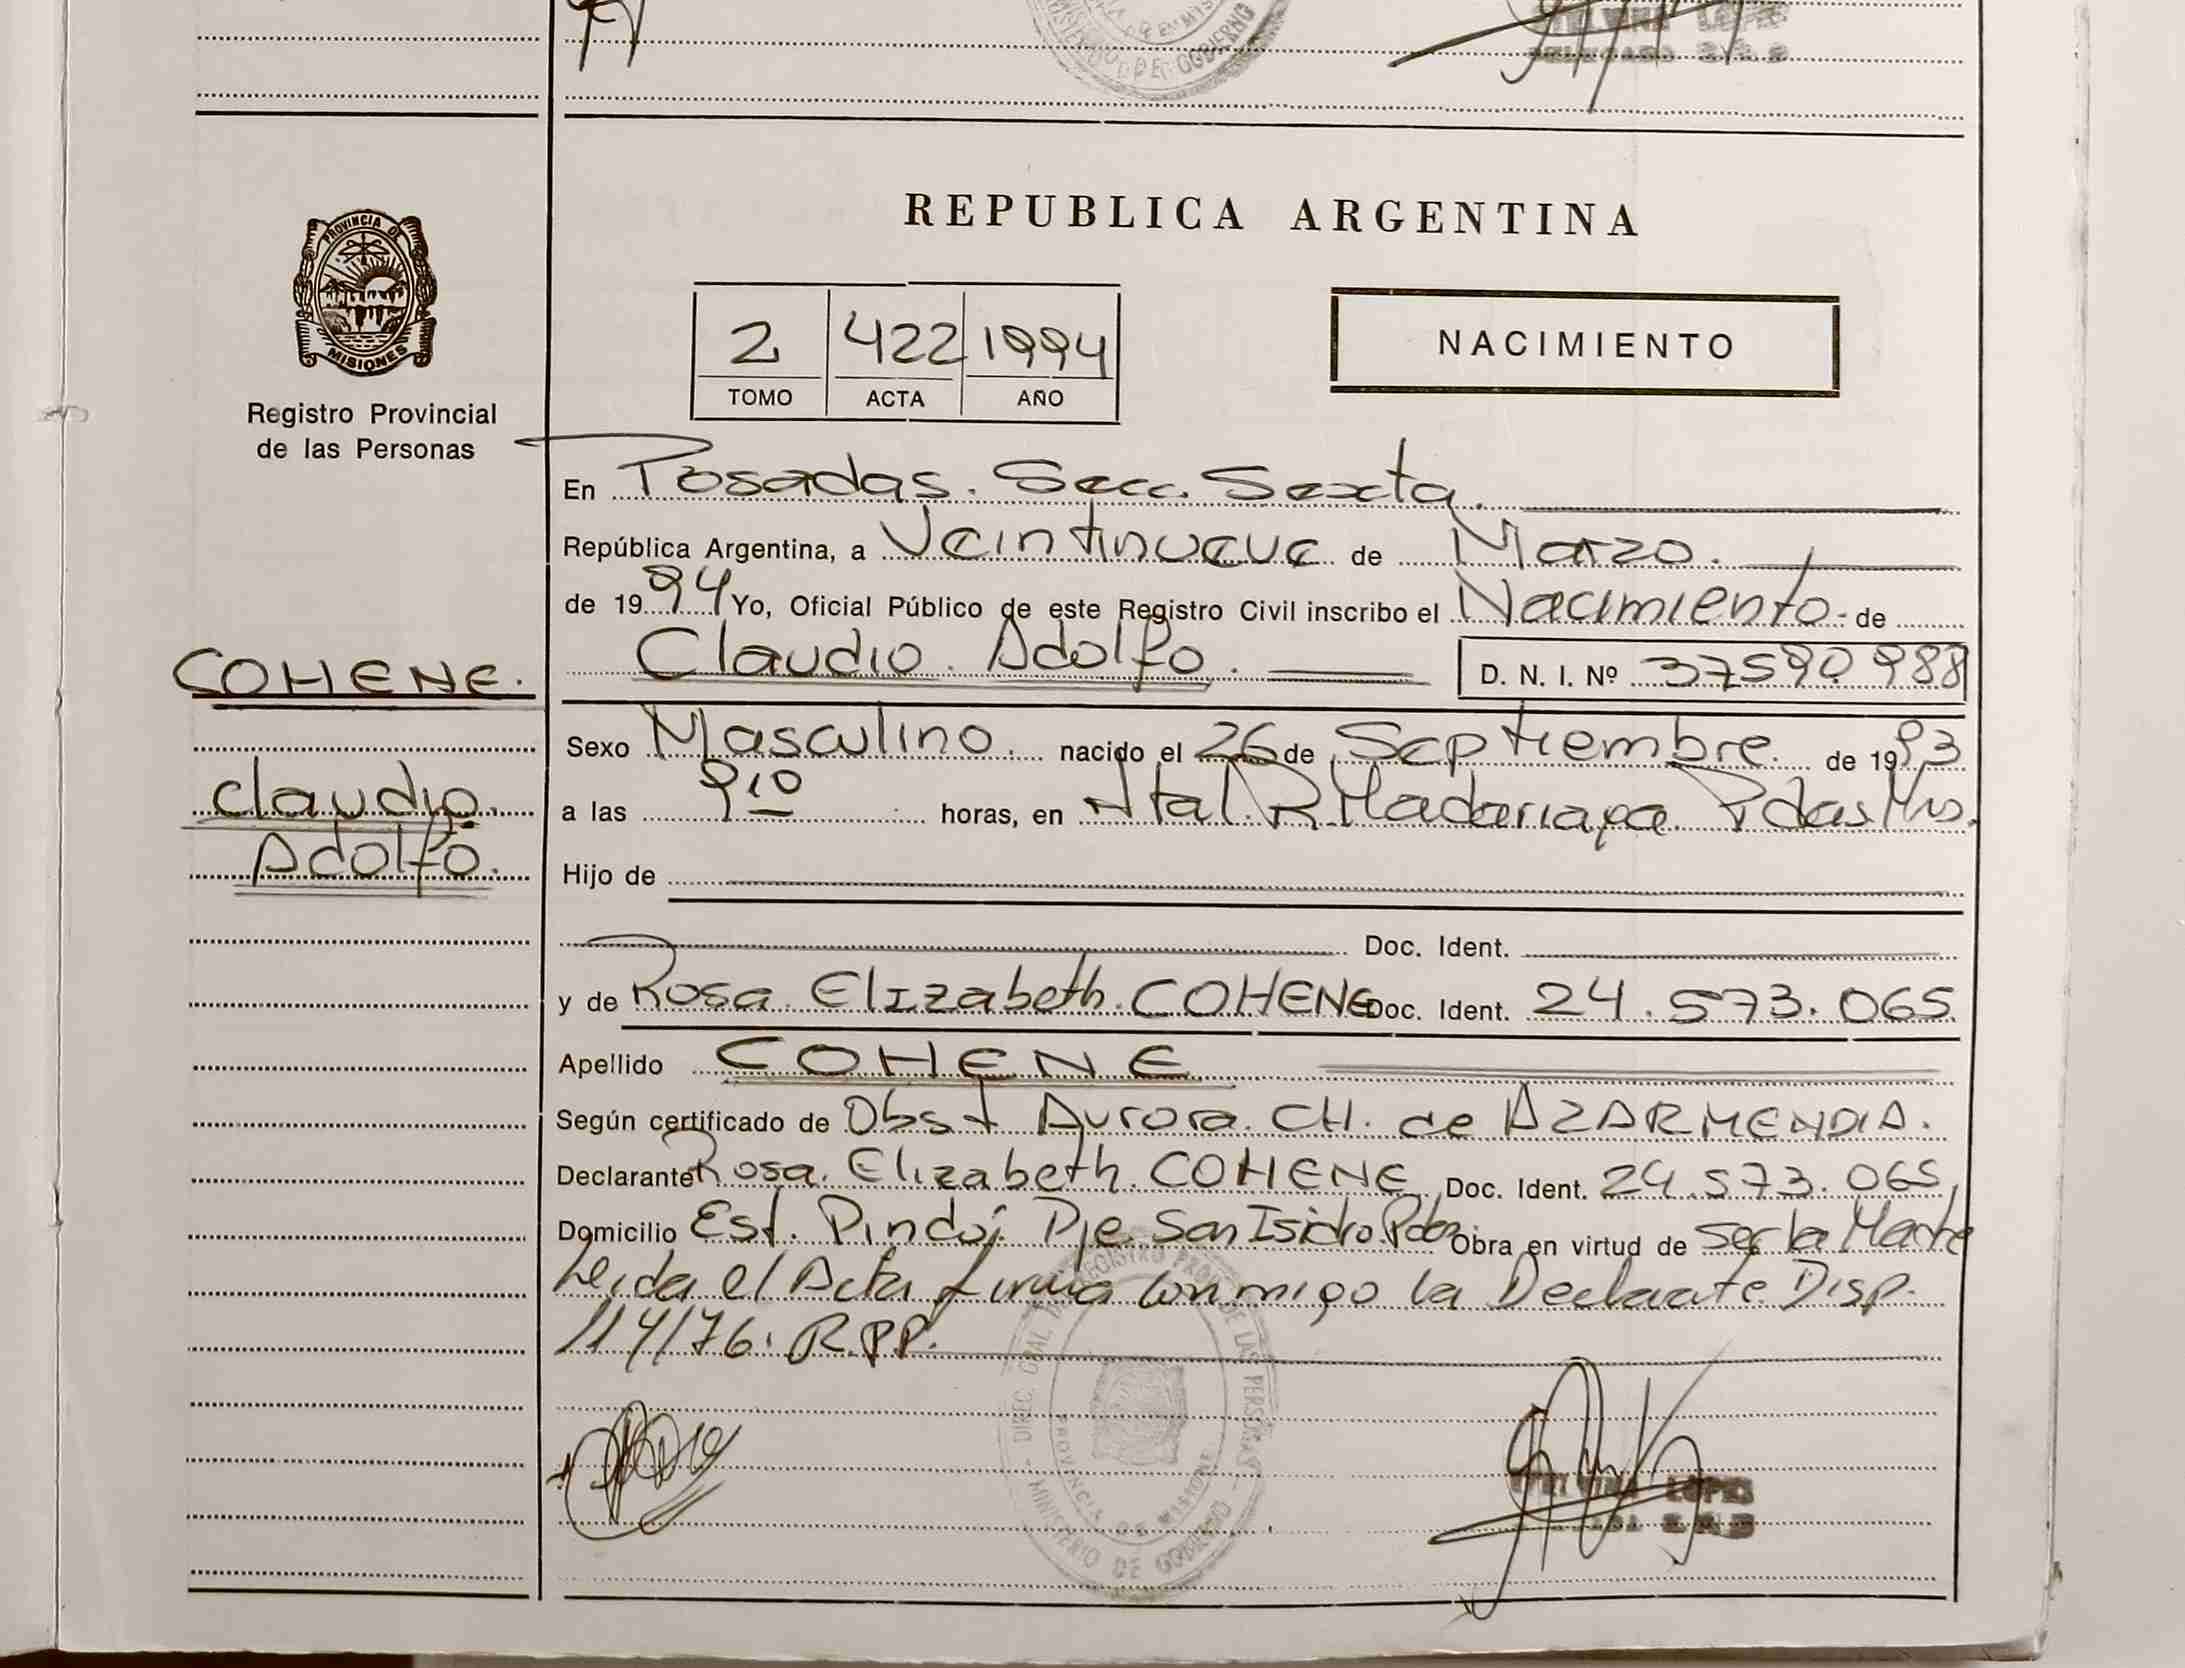 PROVINCIA DE
MISIONES
Registro Provincial
de las Personas
COHENE.
Claudio.
Adolfo.
DE GOBIERNO
LOPES
REPUBLICA ARGENTINA
2 422 1994
TOMO ACTA AÑO
NACIMIENTO
En Posadas. Secc. Sexta.
República Argentina, a Veintinueve de Marzo.
de 1994 Yo, Oficial Público de este Registro Civil inscribo el Nacimiento de
Claudio. Adolfo. D. N. I. Nº 37590988
Sexo Masculino. nacido el 26 de Septiembre. de 1993
a las 9,10 horas, en Htal. R Madariaga Pdas. Mns.
Hijo de
Doc. Ident.
y de Rosa. Elizabeth. COHENE Doc. Ident. 24.573.065
Apellido COHENE
Según certificado de Obst Aurora. CH. de AZARMENDIA.
Declarante Rosa. Elizabeth. COHENE Doc. Ident. 24.573.065
Domicilio Est. Pindoi Pje. San Isidro Pdas Obra en virtud de ser la Madre
Leida el Acta firma conmigo la Declarate Disp.
114/76. R.P.P.
DIREC. GRAL. REGISTRO PROV. DE LAS PERSONAS
PROVINCIA DE MISIONES
MINISTERIO DE GOBIERNO
LOPES